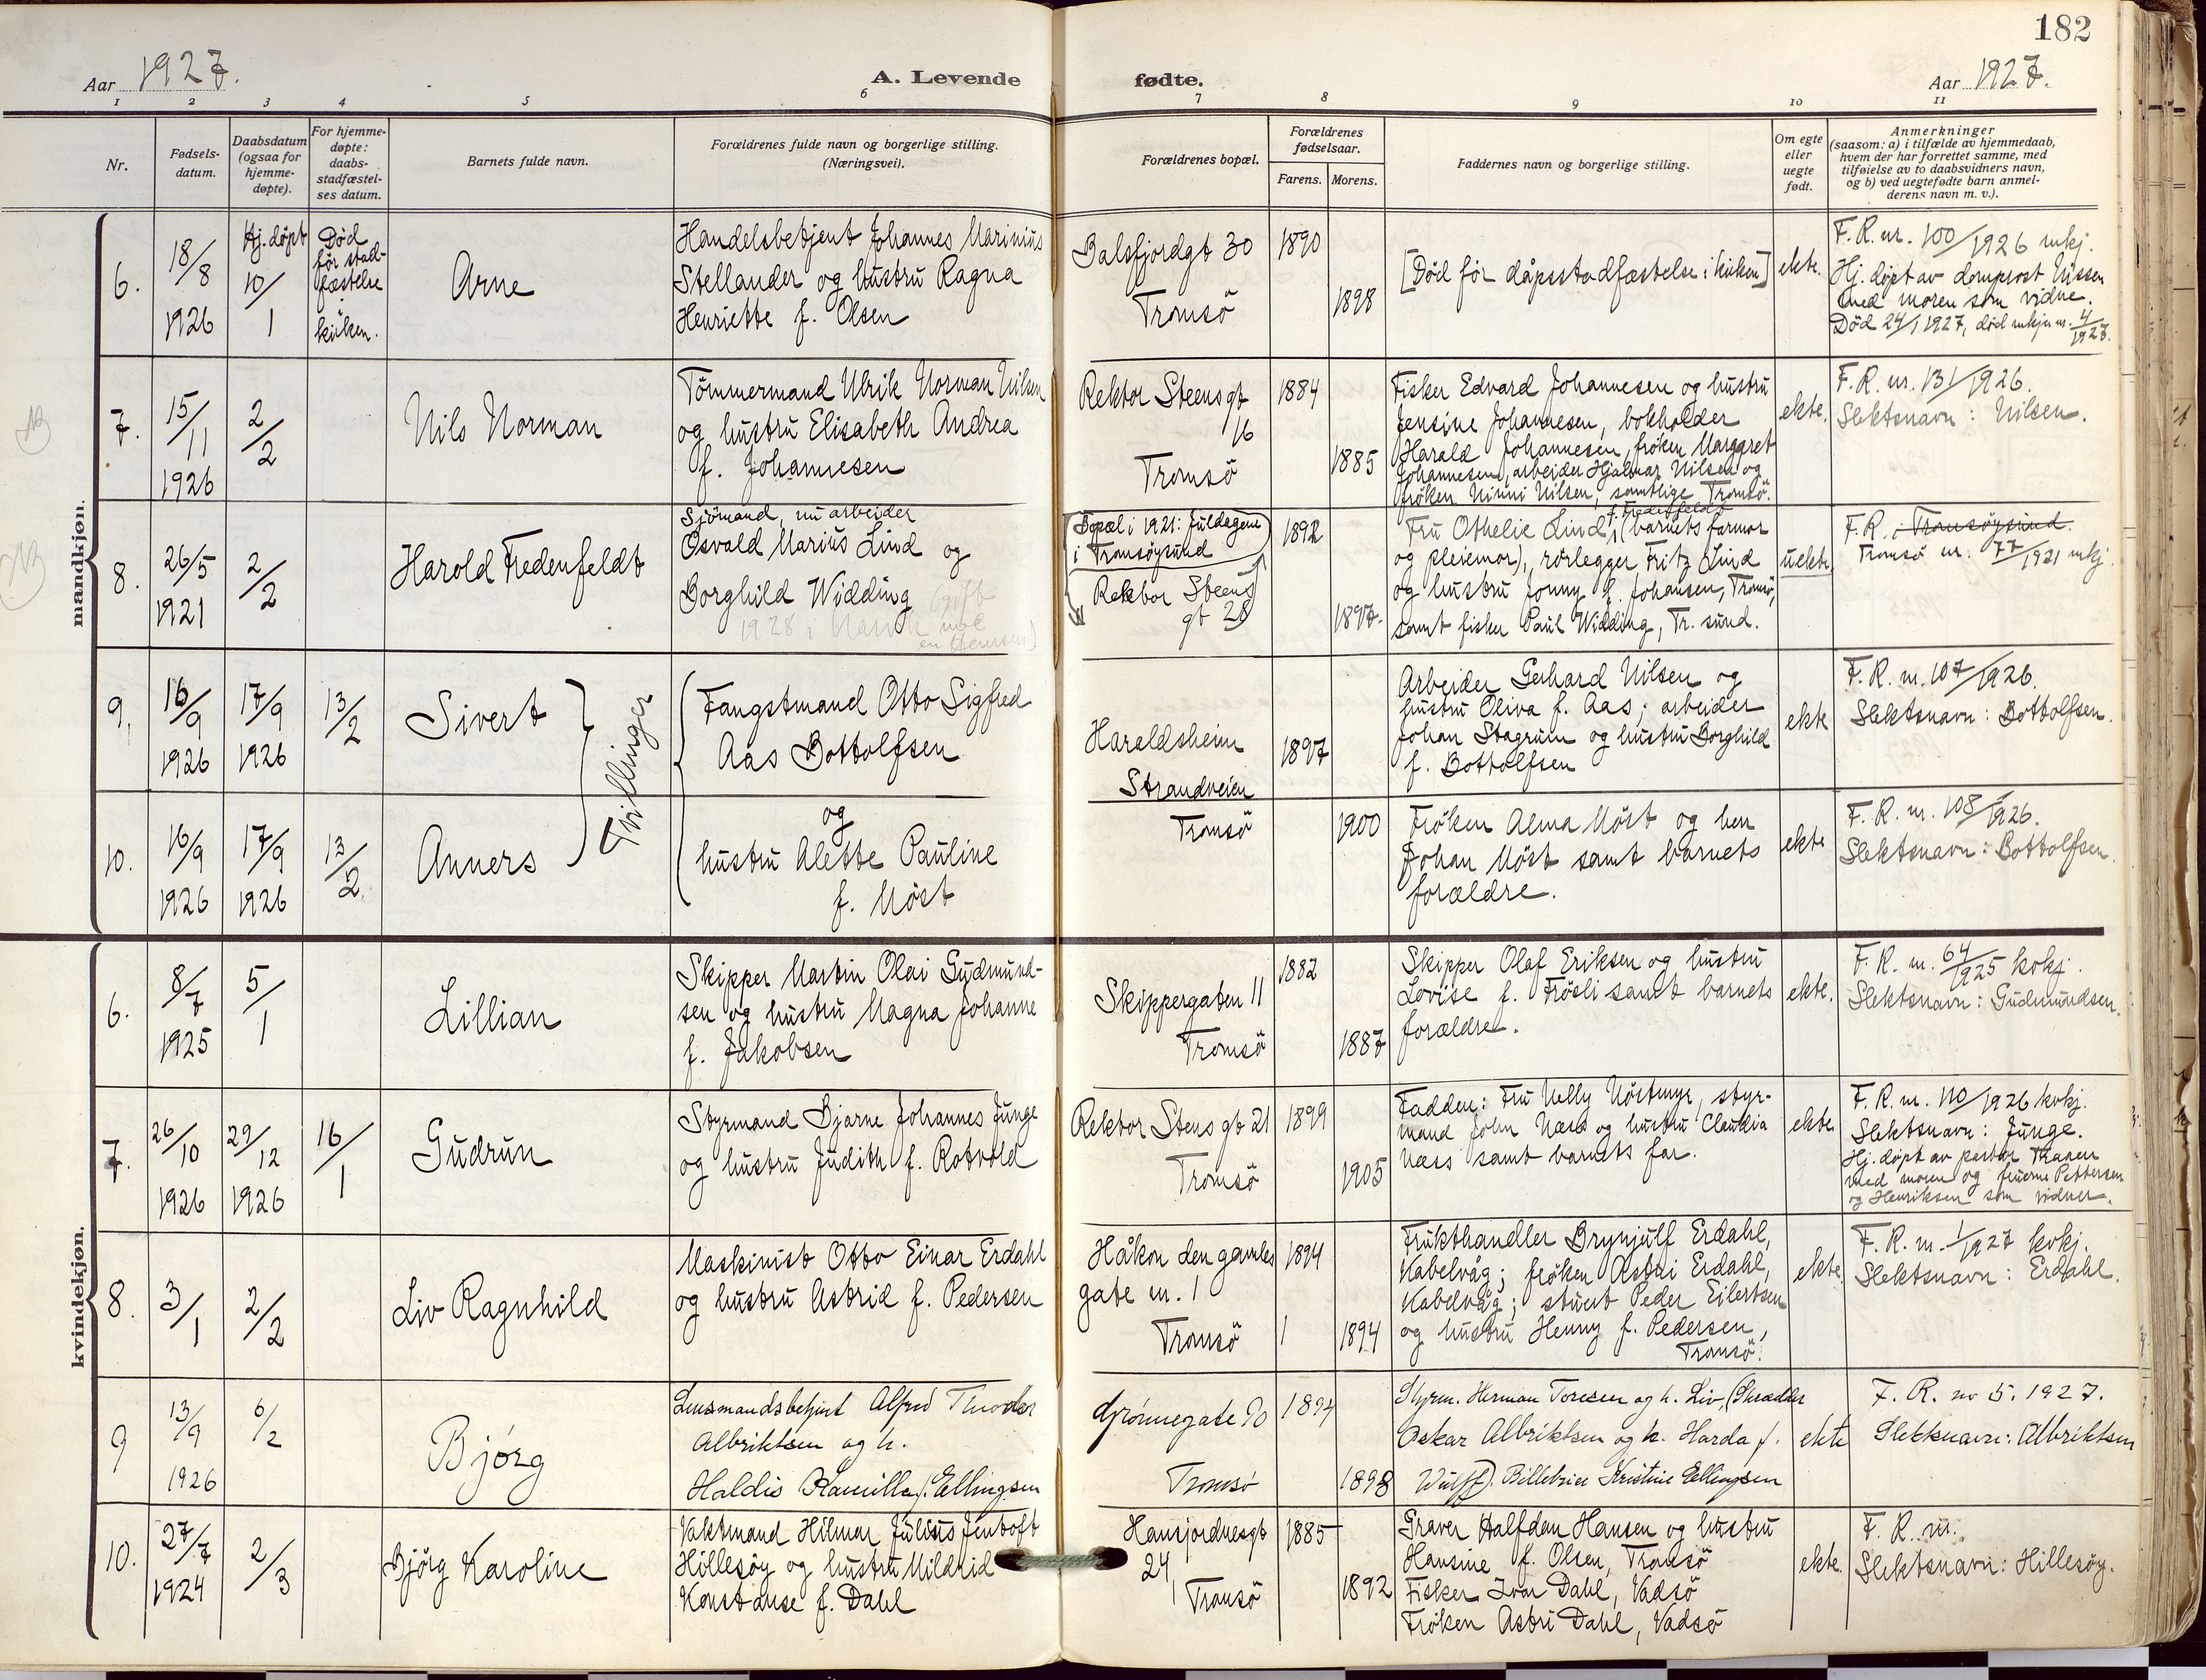 182
Aar 1927.
A. Levende fødte.
Aar 1927.
1 2 3 4 5 6 7 8 9 10 11
Nr.
Fødsels-
datum.
Daabsdatum
(ogsaa for
hjemme-
døpte).
For hjemme-
døpte:
daabs-
stadfæstel-
ses datum.
Barnets fulde navn.
Forældrenes fulde navn og borgerlige stilling.
(Næringsvei).
Forældrenes bopæl.
Forældrenes
fødselsaar.
Farens. Morens.
Faddernes navn og borgerlige stilling.
Om egte
eller
uegte
født.
Anmerkninger
(saasom: a) i tilfælde av hjemmedaab,
hvem der har forrettet samme, med
tilføielse av to daabsvidners navn,
og b) ved uegtefødte barn anmel-
derens navn m. v.).
mandkjøn.
6.
18/8
1926
Hj. døpt
10/1
Død
før stad-
fæstelse
i
kirken.
Arne
Handelsbetjent Johannes Marinius
Stellander og hustru Ragna
Henriette f. Olsen
Balsfjordgt 30
Tromsö
1890
1898
[Død før dåpsstadfæstelse i kirken]
ekte.
F. R. nr. 100/1926 mkj.
Hj. døpt av domprost Nissen
med moren som vidne.
Død 24/1 1927, død mkjn nr. 4/1927.
7.
15/11
1926
2/2
Nils Norman
Tömmermand Ulrik Norman Nilsen
og hustru Elisabeth Andrea
f. Johannesen
Rektor Steensgt
16
Tromsö
1884
1885
Fisker Edvard Johannesen og hustru
Jensine Johannesen, bokholder
Harald Johannesen, frøken Margaret
Johannesen, arbeider Hjalmar Nilsen og
frøken Ninni Nilsen, samtlige Tromsö.
ekte.
F. R. nr. 131/1926.
Slektsnavn: Nilsen.
8.
26/5
1921
2/2
Harold Fredenfeldt
Sjömand, nu arbeider
Osvald Marius Lind og
Borghild Widding (gift
1928 i
Bopæl i 1921: Juldagene
i Tromsøysund
Rektor Steens
gt 28
1892
1897.
f. Fredenfeldt
Fru Othelie Lind, (barnets farmor
og pleiemor), rørlegger Fritz Lind
og hustru Jonny f. Johansen, Tromsö,
samt fisker Paul Widding, Tr. sund.
uekte.
F. R. i Tromsøysund.
Tromsö nr. 77/1921 mkj
9.
16/9
1926
17/9
1926
13/2
Sivert
Tvillinger
Fangstmand Otto Sigfred
Aas Bottolfsen
Haraldsheim
Strandveien
Tromsö
1897
Arbeider Gerhard Nilsen og
hustru Oliva f. Aas; arbeider
Johan Stagrum og hustru Borghild
f. Bottolfsen
ekte
F. R. nr. 107/1926.
Slektsnavn: Bottolfsen.
10.
16/9
1926
17/9
1926
13/2
Anners
og
hustru Alette Pauline
f. Möst
1900
Frøken Alma Möst og herr
Johan Möst samt barnets
forældre.
ekte
F. R. nr. 108/1926.
Slektsnavn: Bottolfsen.
kvindekjøn.
6.
8/7
1925
5/1
Lillian
Skipper Martin Olai Gudmund-
sen og hustru Magna Johanne
f. Jakobsen
Skippergaten 11
Tromsö
1882
1887
Skipper Olaf Eriksen og hustru
Lovise f. Frösli samt barnets
forældre.
ekte.
F. R. nr. 64/1925 kvkj.
Slektsnavn: Gudmundsen.
7.
26/10
1926
29/12
1926
16/1
Gudrun
Styrmand Bjarne Johannes Junge
og hustru Judith f. Rotvold
Rektor Stens gt 21
Tromsö
1899
1905
Faddere: Fru Nelly Nöstmyr, styr-
mand John Næss og hustru Claudia
Næss samt barnets far.
ekte
F. R. nr. 110/1926 kvkj.
Slektsnavn: Junge.
Hj. døpt av pastor
med moren og fruerne Pettersen
og Henriksen som vidner.
8.
3/1
2/2
Liv Ragnhild
Maskinist Otto Einar Erdahl
og hustru Astrid f. Pedersen
Håkon den gamles
gate nr. 1
Tromsö
1894
1894
Frukthandler Brynjulf Erdahl,
Kabelvåg; frøken Astri Erdahl,
Kabelvåg; stuert Peder Eilertsen
og hustru Henny f. Pedersen,
Tromsö.
ekte.
F. R. nr. 1/1927 kvkj.
Slektsnavn: Erdahl.
9
13/9
1926
6/2
Bjørg
Lensmandsbetjent Alfred Theodor
Albriktsen og h.
Haldis Kamilla f. Ellingsen
Grönnegate 70
Tromsö
1894
1898
Styrm. Herman Toresen og h. Liv, (Skrædder
Oskar Albriktsen og h. Harda f.
Wulff). Billetrice Kristine Ellingsen
ekte
F. R. no 5. 1927.
Slektsnavn: Albriktsen
10.
27/7
1924
2/3
Bjørg Karoline
Vaktmand Hilmar Julius Jentoft
Hillesøy og hustru Mildrid
Konstanse f. Dahl
Hansjordnesgt
24,
Tromsö
1885
1892
Graver Halfdan Hansen og hustru
Hansine f. Olsen, Tromsö
Fisker Ivar Dahl, Vadsö
Frøken Astri Dahl, Vadsö
ekte.
F. R. nr.
Slektsnavn: Hillesøy.